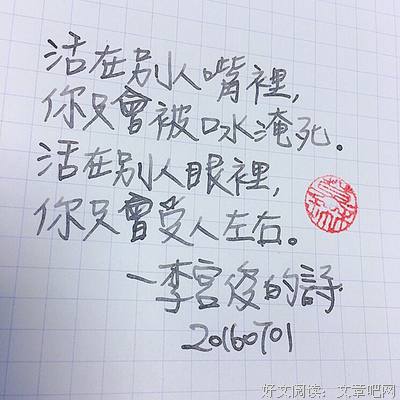 活在別人嘴裡,
你只會被口水淹死.
活在別人眼裡,
你只會受人左右。
—李宮俊的詩
20160701
好文阅读: 文章吧网